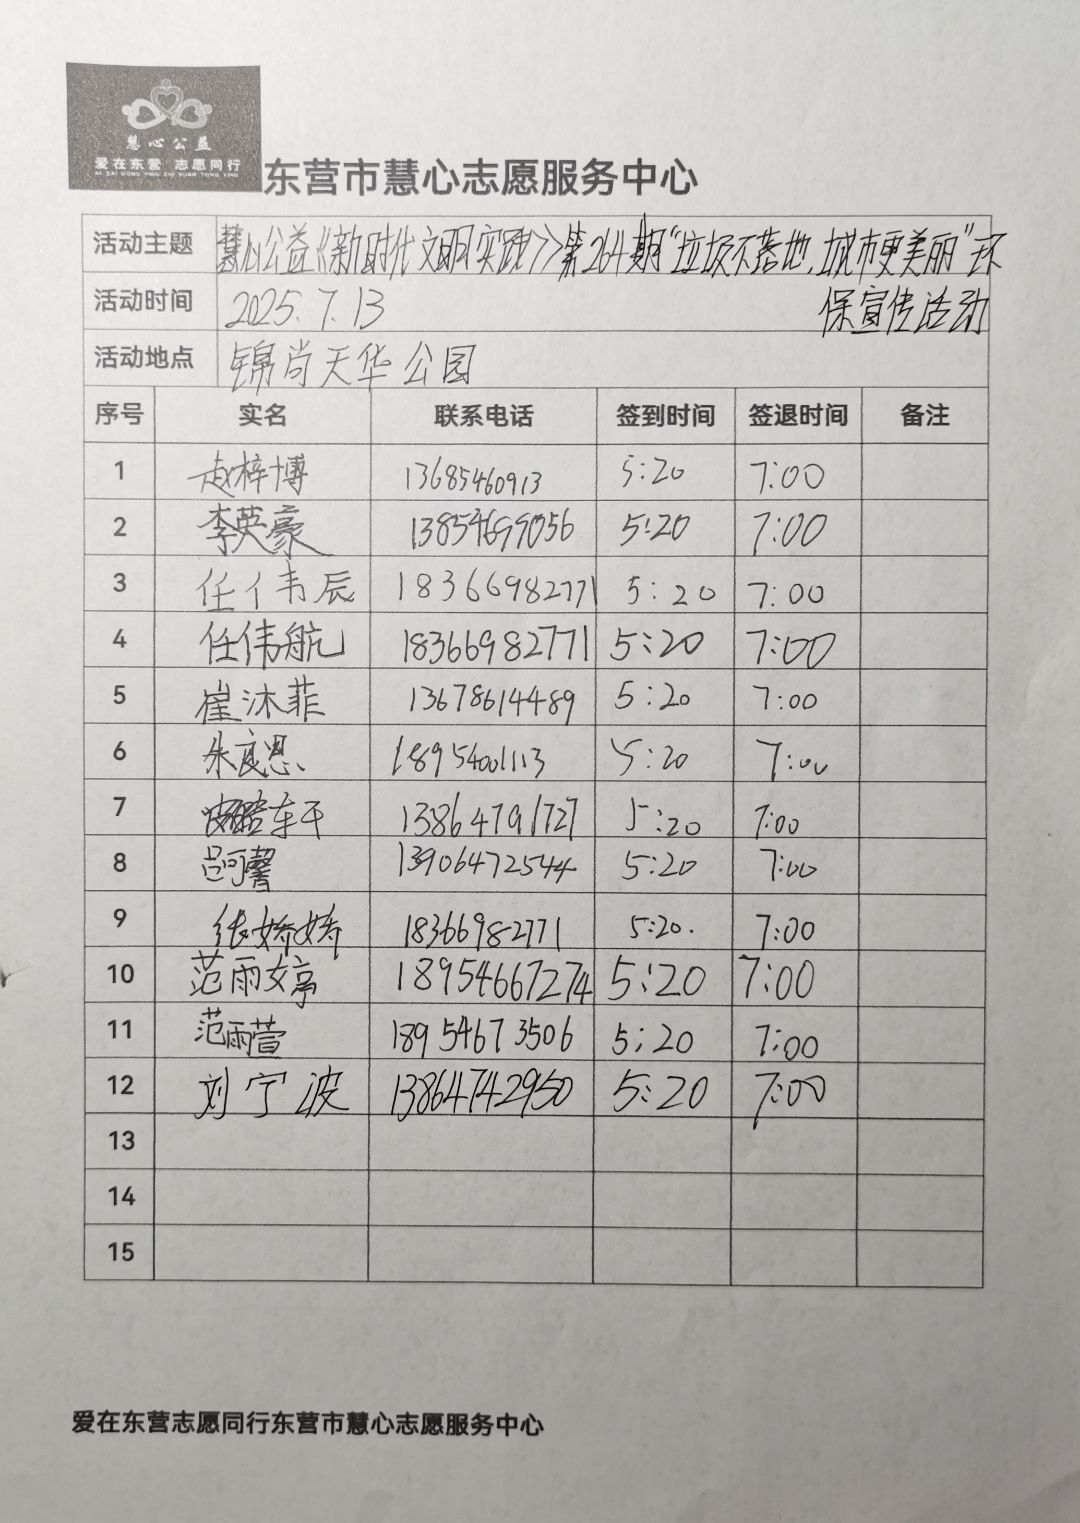 慧心公益
爱在东营 志愿同行
AI ZAI DONG YING ZHI YUAN TONG XING
东营市慧心志愿服务中心
活动主题 慧心公益《新时代文明实践》第264期“垃圾不落地,城市更美丽”环
保宣传活动
活动时间 2025.7.13
活动地点 锦尚天华公园
序号 实名 联系电话 签到时间 签退时间 备注
1 赵梓博 13685460913 5:20 7:00
2 李英豪 13854699056 5:20 7:00
3 任伟辰 18366982771 5:20 7:00
4 任伟航 18366982771 5:20 7:00
5 崔沐菲 13678614489 5:20 7:00
6 朱良恩 18954001113 5:20 7:00
7 13864791727 5:20 7:00
8 吕珂馨 13906472544 5:20 7:00
9 张娇娇 18366982771 5:20. 7:00
10 范雨婷 18954667274 5:20 7:00
11 范雨萱 18954673506 5:20 7:00
12 刘宁波 13864742950 5:20 7:00
13
14
15
爱在东营志愿同行东营市慧心志愿服务中心